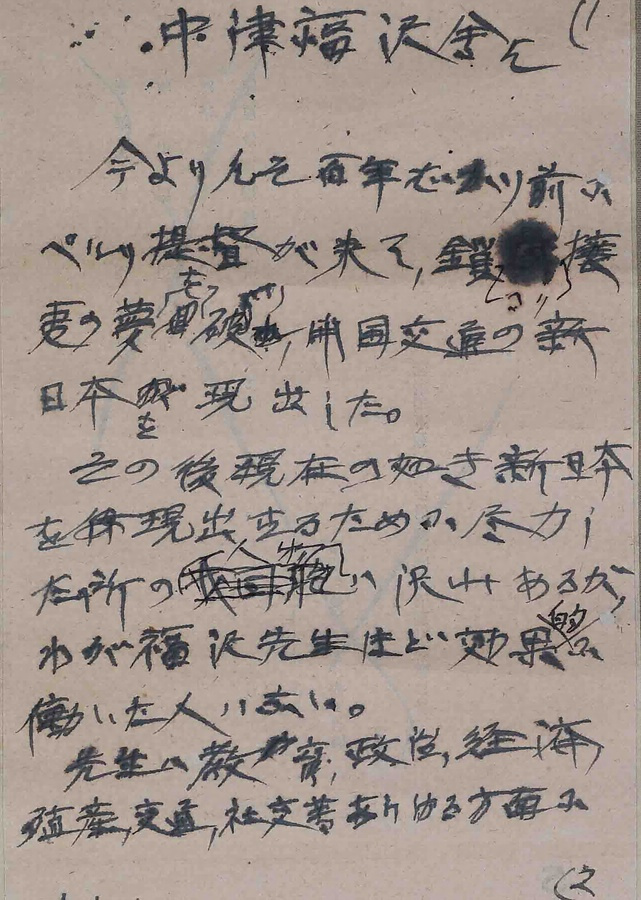 (1
中津福沢会と
今よりおよそ百年ばかり前に
ペルリ提督が来て、鎖国攘
夷の夢を破り、開国交通の新
日本を現出した。
その後現在の如き新日本
を現出するために尽力し
た所の人物ハ沢山あるが、
わが福沢先生ほど効果的に
働いた人ハない。
先生ハ教育、政治、経済、
殖産、交通、社交等あらゆる方面に
(2